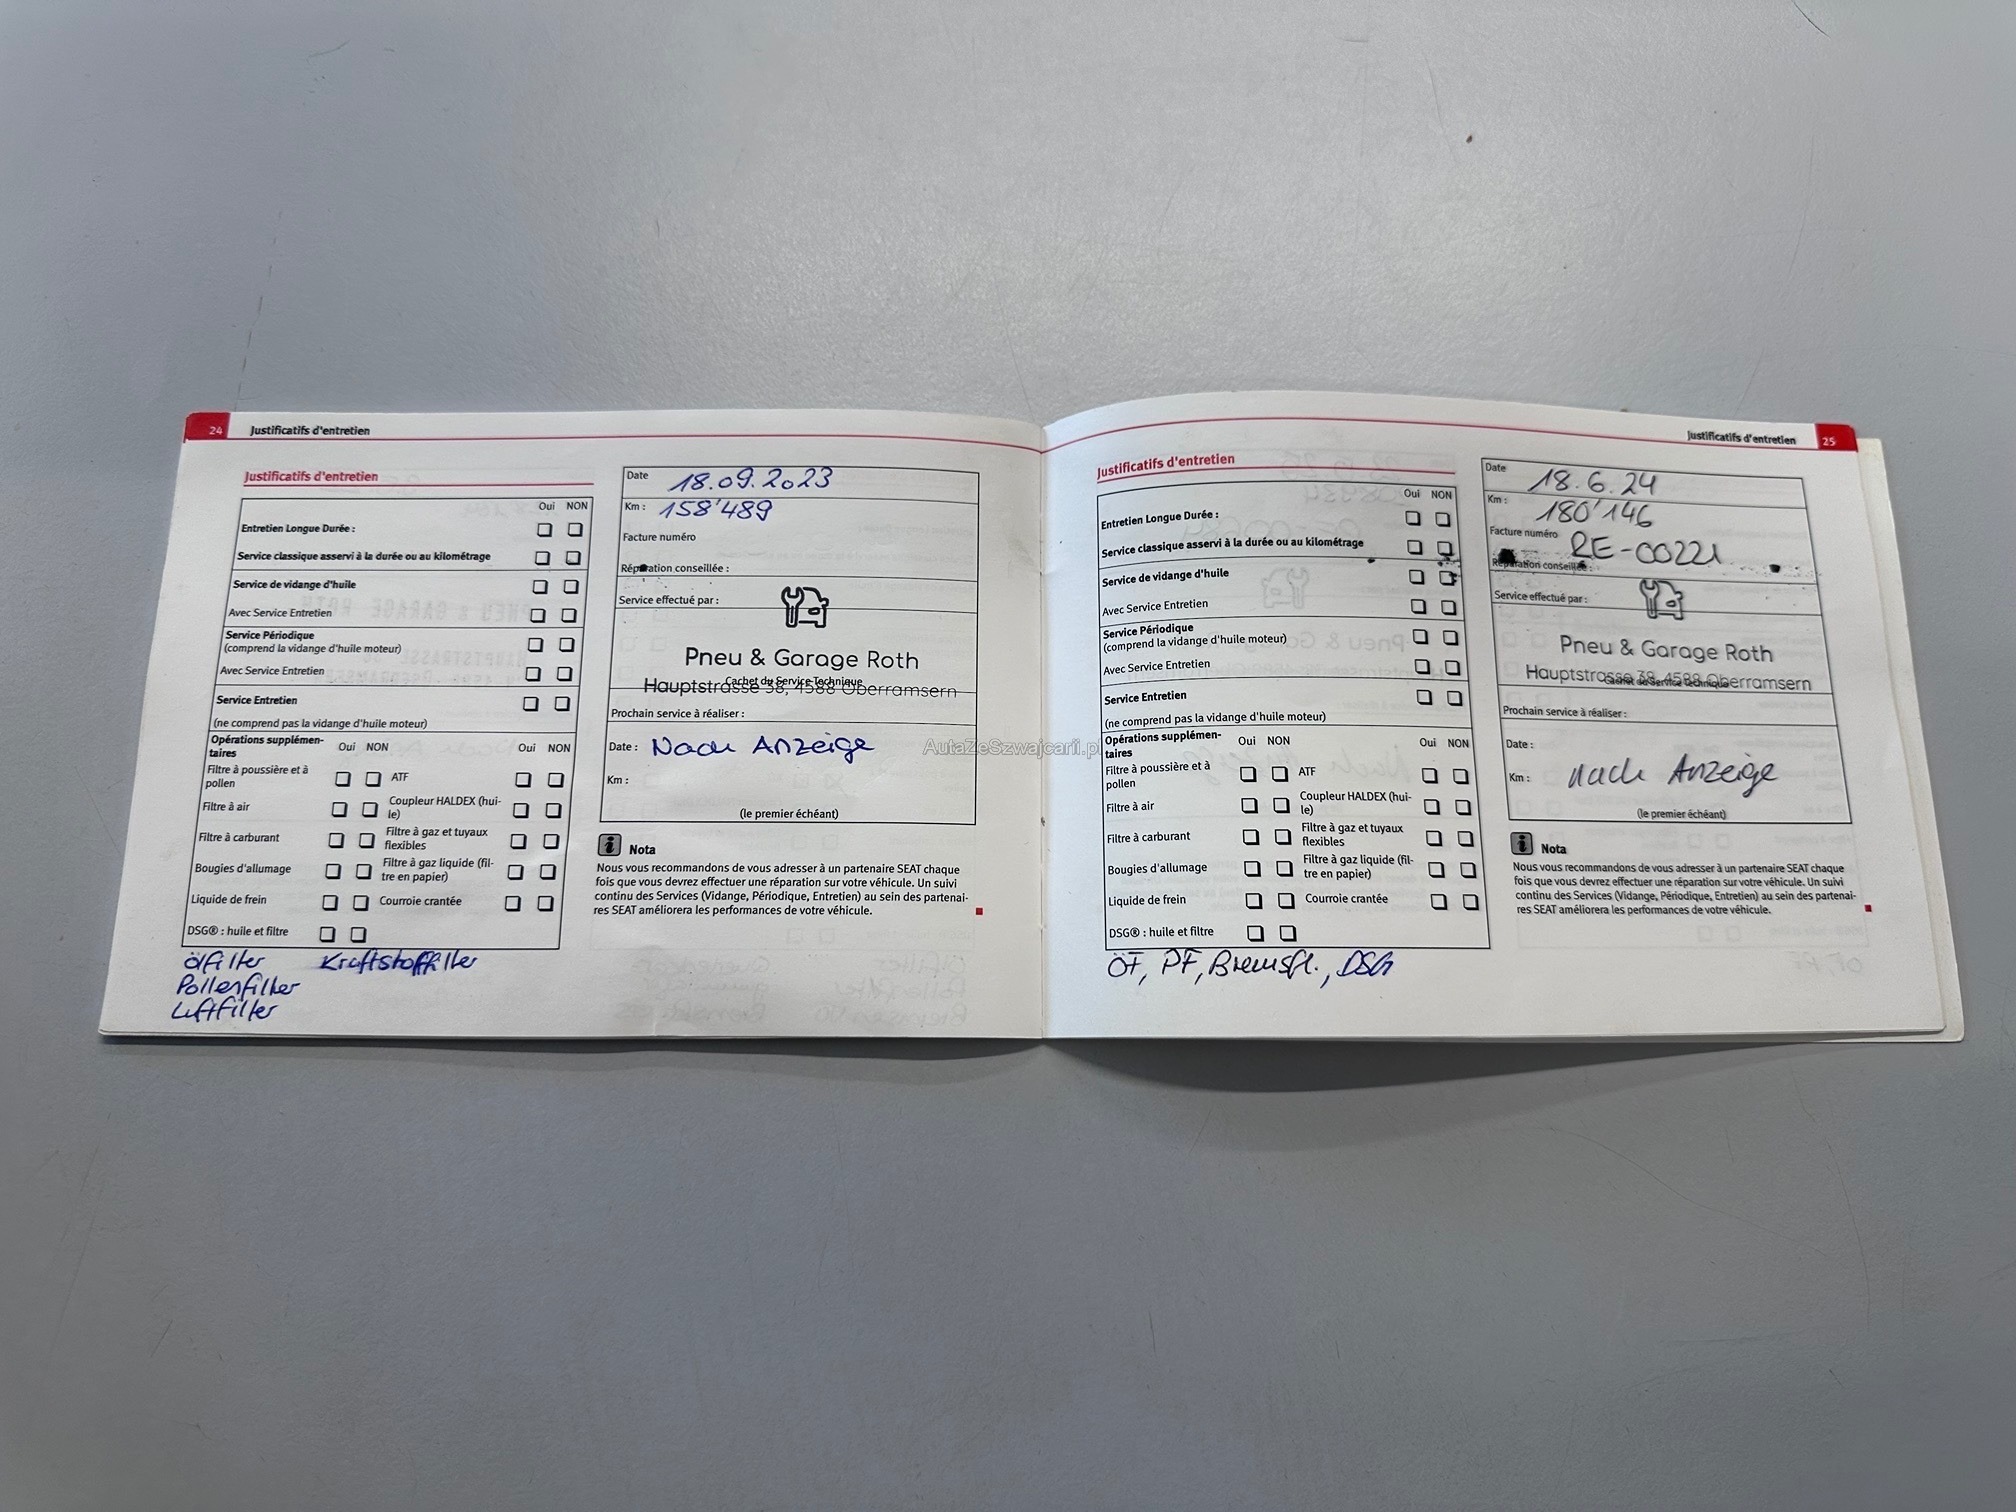 24 Justificatifs d'entretien
Justificatifs d'entretien
Oui NON
Entretien Longue Durée :
Service classique asservi à la durée ou au kilométrage
Service de vidange d'huile
Avec Service Entretien
Service Périodique
(comprend la vidange d'huile moteur)
Avec Service Entretien
Service Entretien
(ne comprend pas la vidange d'huile moteur)
Opérations supplémen-
taires
Oui NON
Oui NON
Filtre à poussière et à
pollen
ATF
Filtre à air
Coupleur HALDEX (hui-
le)
Filtre à carburant
Filtre à gaz et tuyaux
flexibles
Bougies d'allumage
Filtre à gaz liquide (fil-
tre en papier)
Liquide de frein
Courroie crantée
DSG® : huile et filtre
Ölfilter Kraftstoffilter
Pollenfilter
Luftfilter
Date 18.09.2023
Km : 158'489
Facture numéro
Réparation conseillée :
Service effectué par :
Pneu & Garage Roth
Cachet du Service Technique
Hauptstrasse 38, 4588 Oberramsern
Prochain service à réaliser :
Date : Nach Anzeige
Km :
(le premier échéant)
Nota
Nous vous recommandons de vous adresser à un partenaire SEAT chaque
fois que vous devrez effectuer une réparation sur votre véhicule. Un suivi
continu des Services (Vidange, Périodique, Entretien) au sein des partenai-
res SEAT améliorera les performances de votre véhicule.
AutaZeSzwajcarii.pl
Justificatifs d'entretien 25
Justificatifs d'entretien
Oui NON
Entretien Longue Durée :
Service classique asservi à la durée ou au kilométrage
Service de vidange d'huile
Avec Service Entretien
Service Périodique
(comprend la vidange d'huile moteur)
Avec Service Entretien
Service Entretien
(ne comprend pas la vidange d'huile moteur)
Opérations supplémen-
taires
Oui NON
Oui NON
Filtre à poussière et à
pollen
ATF
Filtre à air
Coupleur HALDEX (hui-
le)
Filtre à carburant
Filtre à gaz et tuyaux
flexibles
Bougies d'allumage
Filtre à gaz liquide (fil-
tre en papier)
Liquide de frein
Courroie crantée
DSG® : huile et filtre
ÖF, PF, Bremsfl., DSG
Date 18.6.24
Km : 180'146
Facture numéro RE-00221
Réparation conseillée :
Service effectué par :
Pneu & Garage Roth
Cachet du Service Technique
Hauptstrasse 38, 4588 Oberramsern
Prochain service à réaliser :
Date :
Km : nach Anzeige
(le premier échéant)
Nota
Nous vous recommandons de vous adresser à un partenaire SEAT chaque
fois que vous devrez effectuer une réparation sur votre véhicule. Un suivi
continu des Services (Vidange, Périodique, Entretien) au sein des partenai-
res SEAT améliorera les performances de votre véhicule.